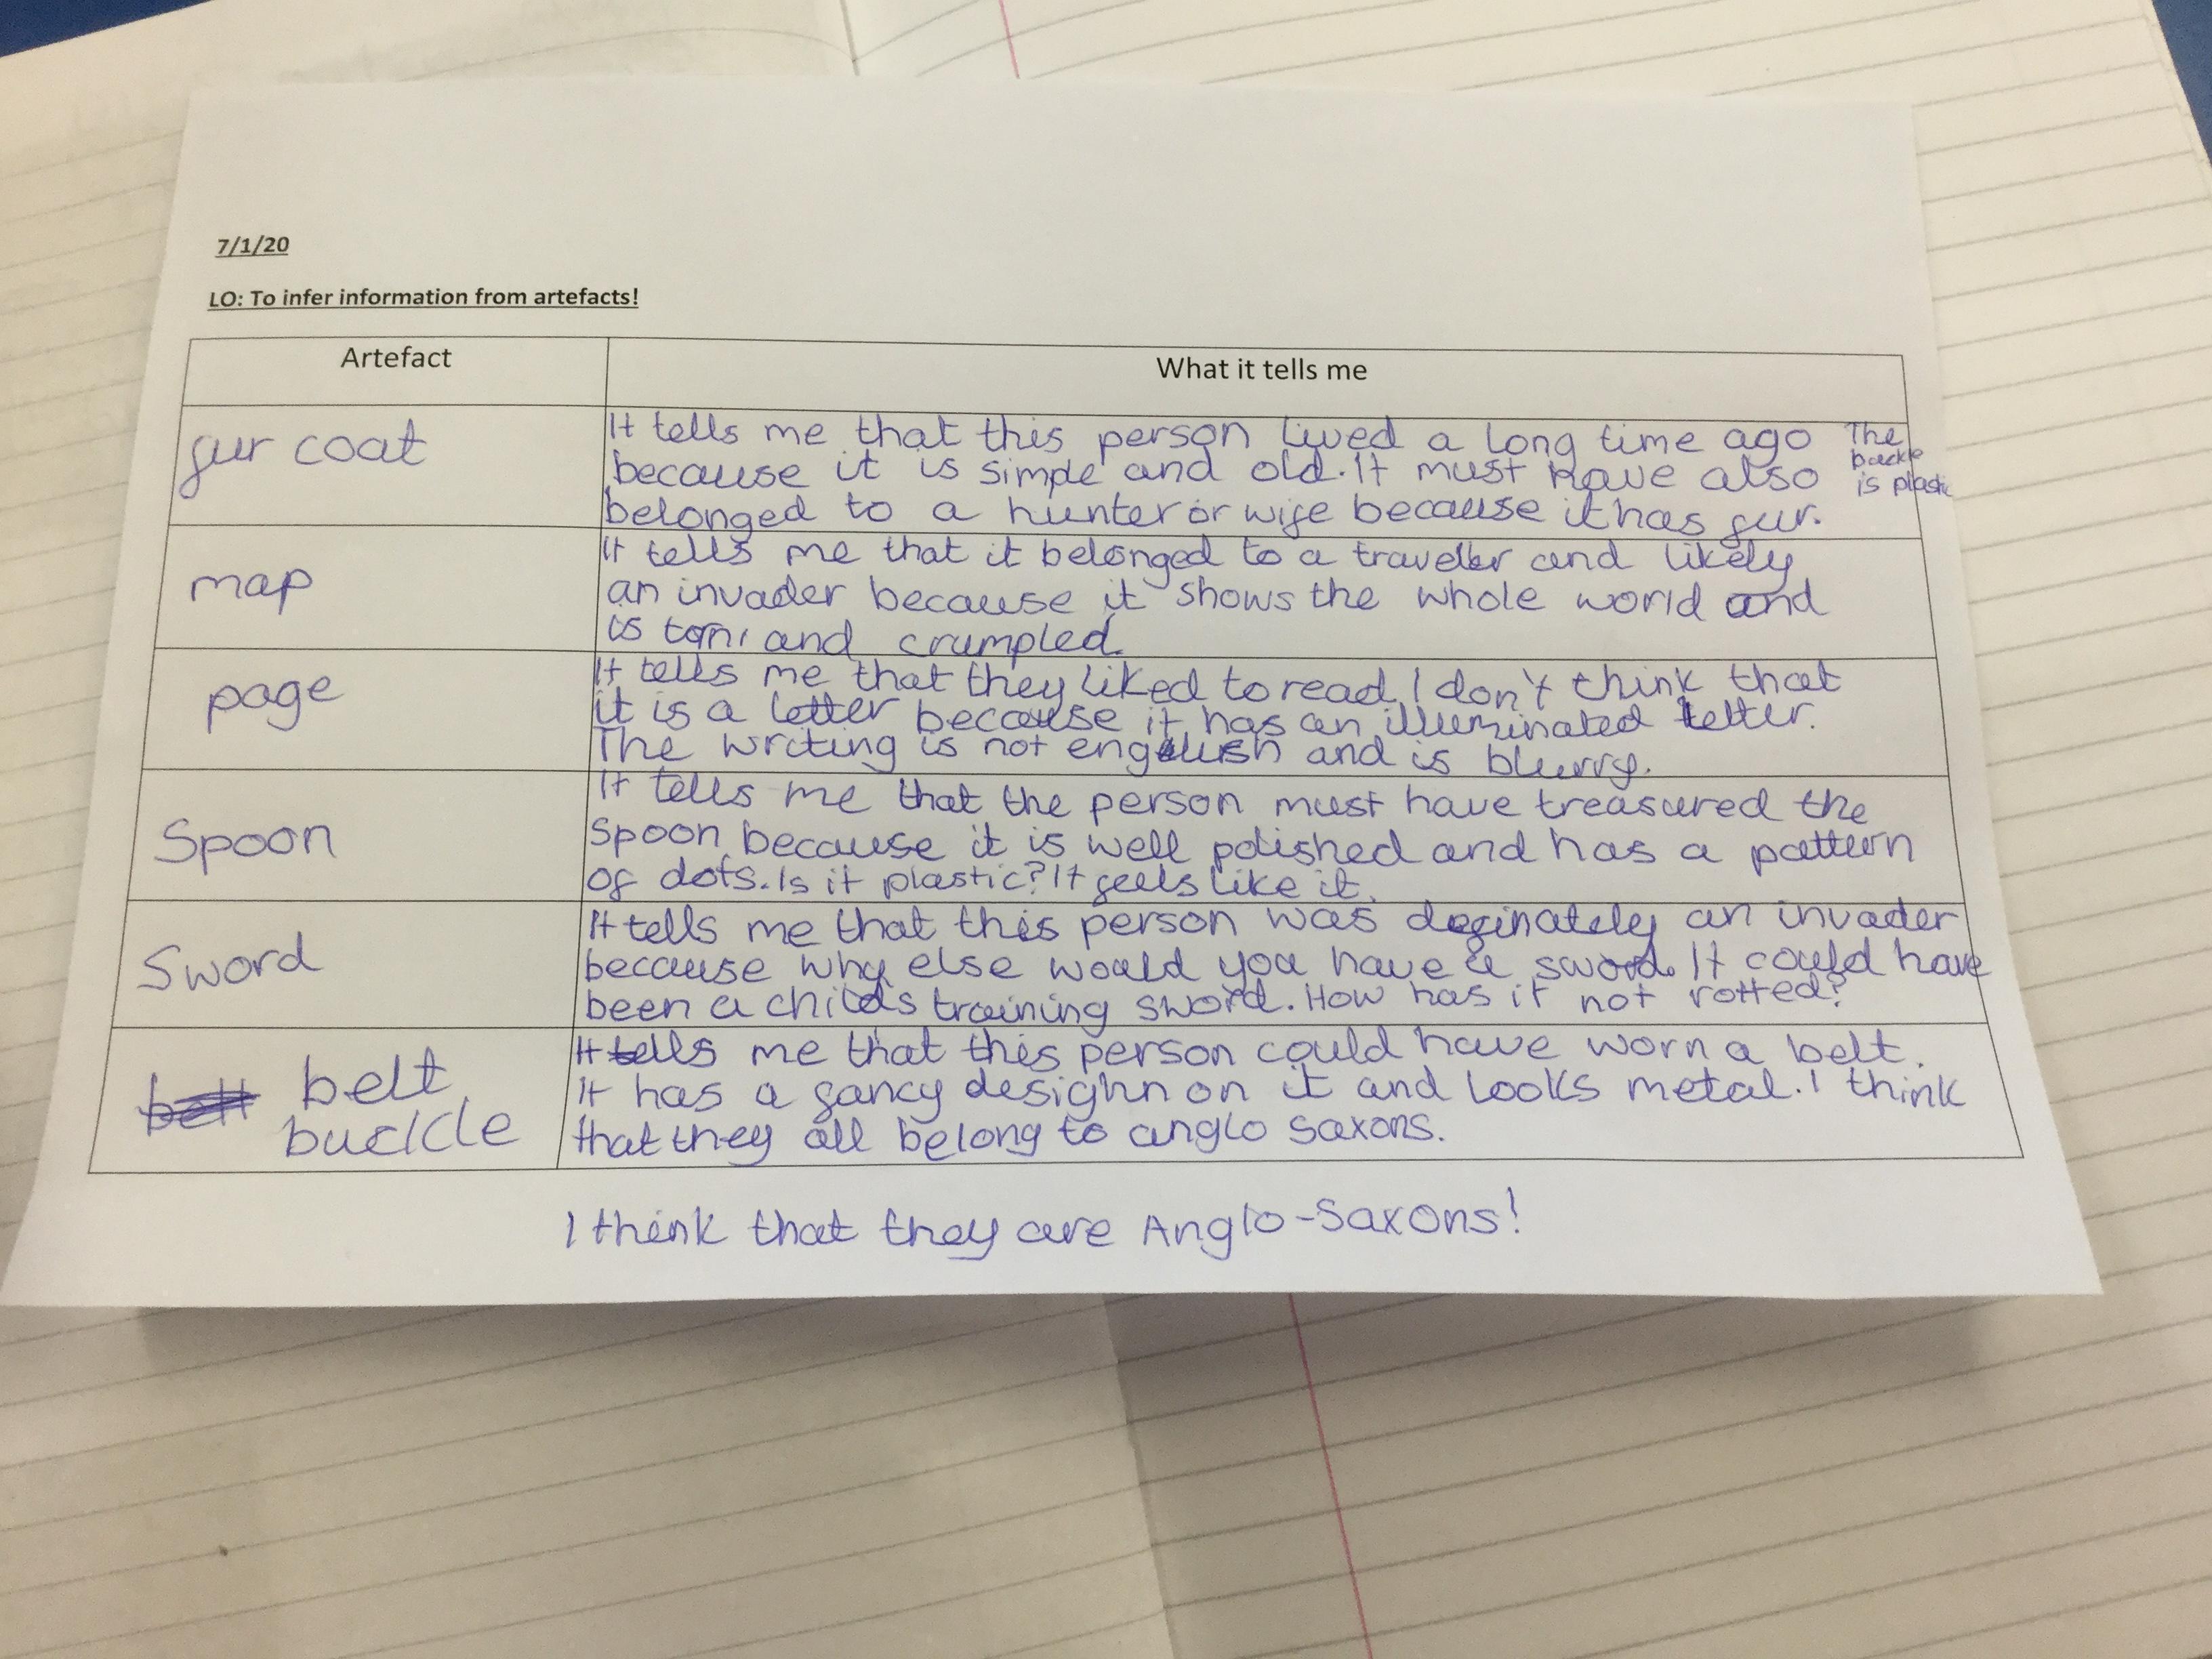 7/1/20
LO: To infer information from artefacts!
Artefact
What it tells me
fur coat
It tells me that this person lived a long time ago
because it is simple and old. It must have also
belonged to a hunter or wife because it has fur.
The
buckle
is plastic
map
It tells me that it belonged to a traveller and likely
an invader because it shows the whole world and
is torn and crumpled.
page
It tells me that they liked to read. I don't think that
it is a letter because it has an illuminated letter.
The writing is not english and is blurry.
Spoon
It tells me that the person must have treasured the
spoon because it is well polished and has a pattern
of dots. Is it plastic? It feels like it.
Sword
It tells me that this person was definately an invader
because why else would you have a sword. It could have
been a childs training sword. How has it not rotted?
belt
buckle
It tells me that this person could have worn a belt.
It has a fancy desighn on it and looks metal. I think
that they all belong to anglo saxons.
I think that they are Anglo-Saxons!